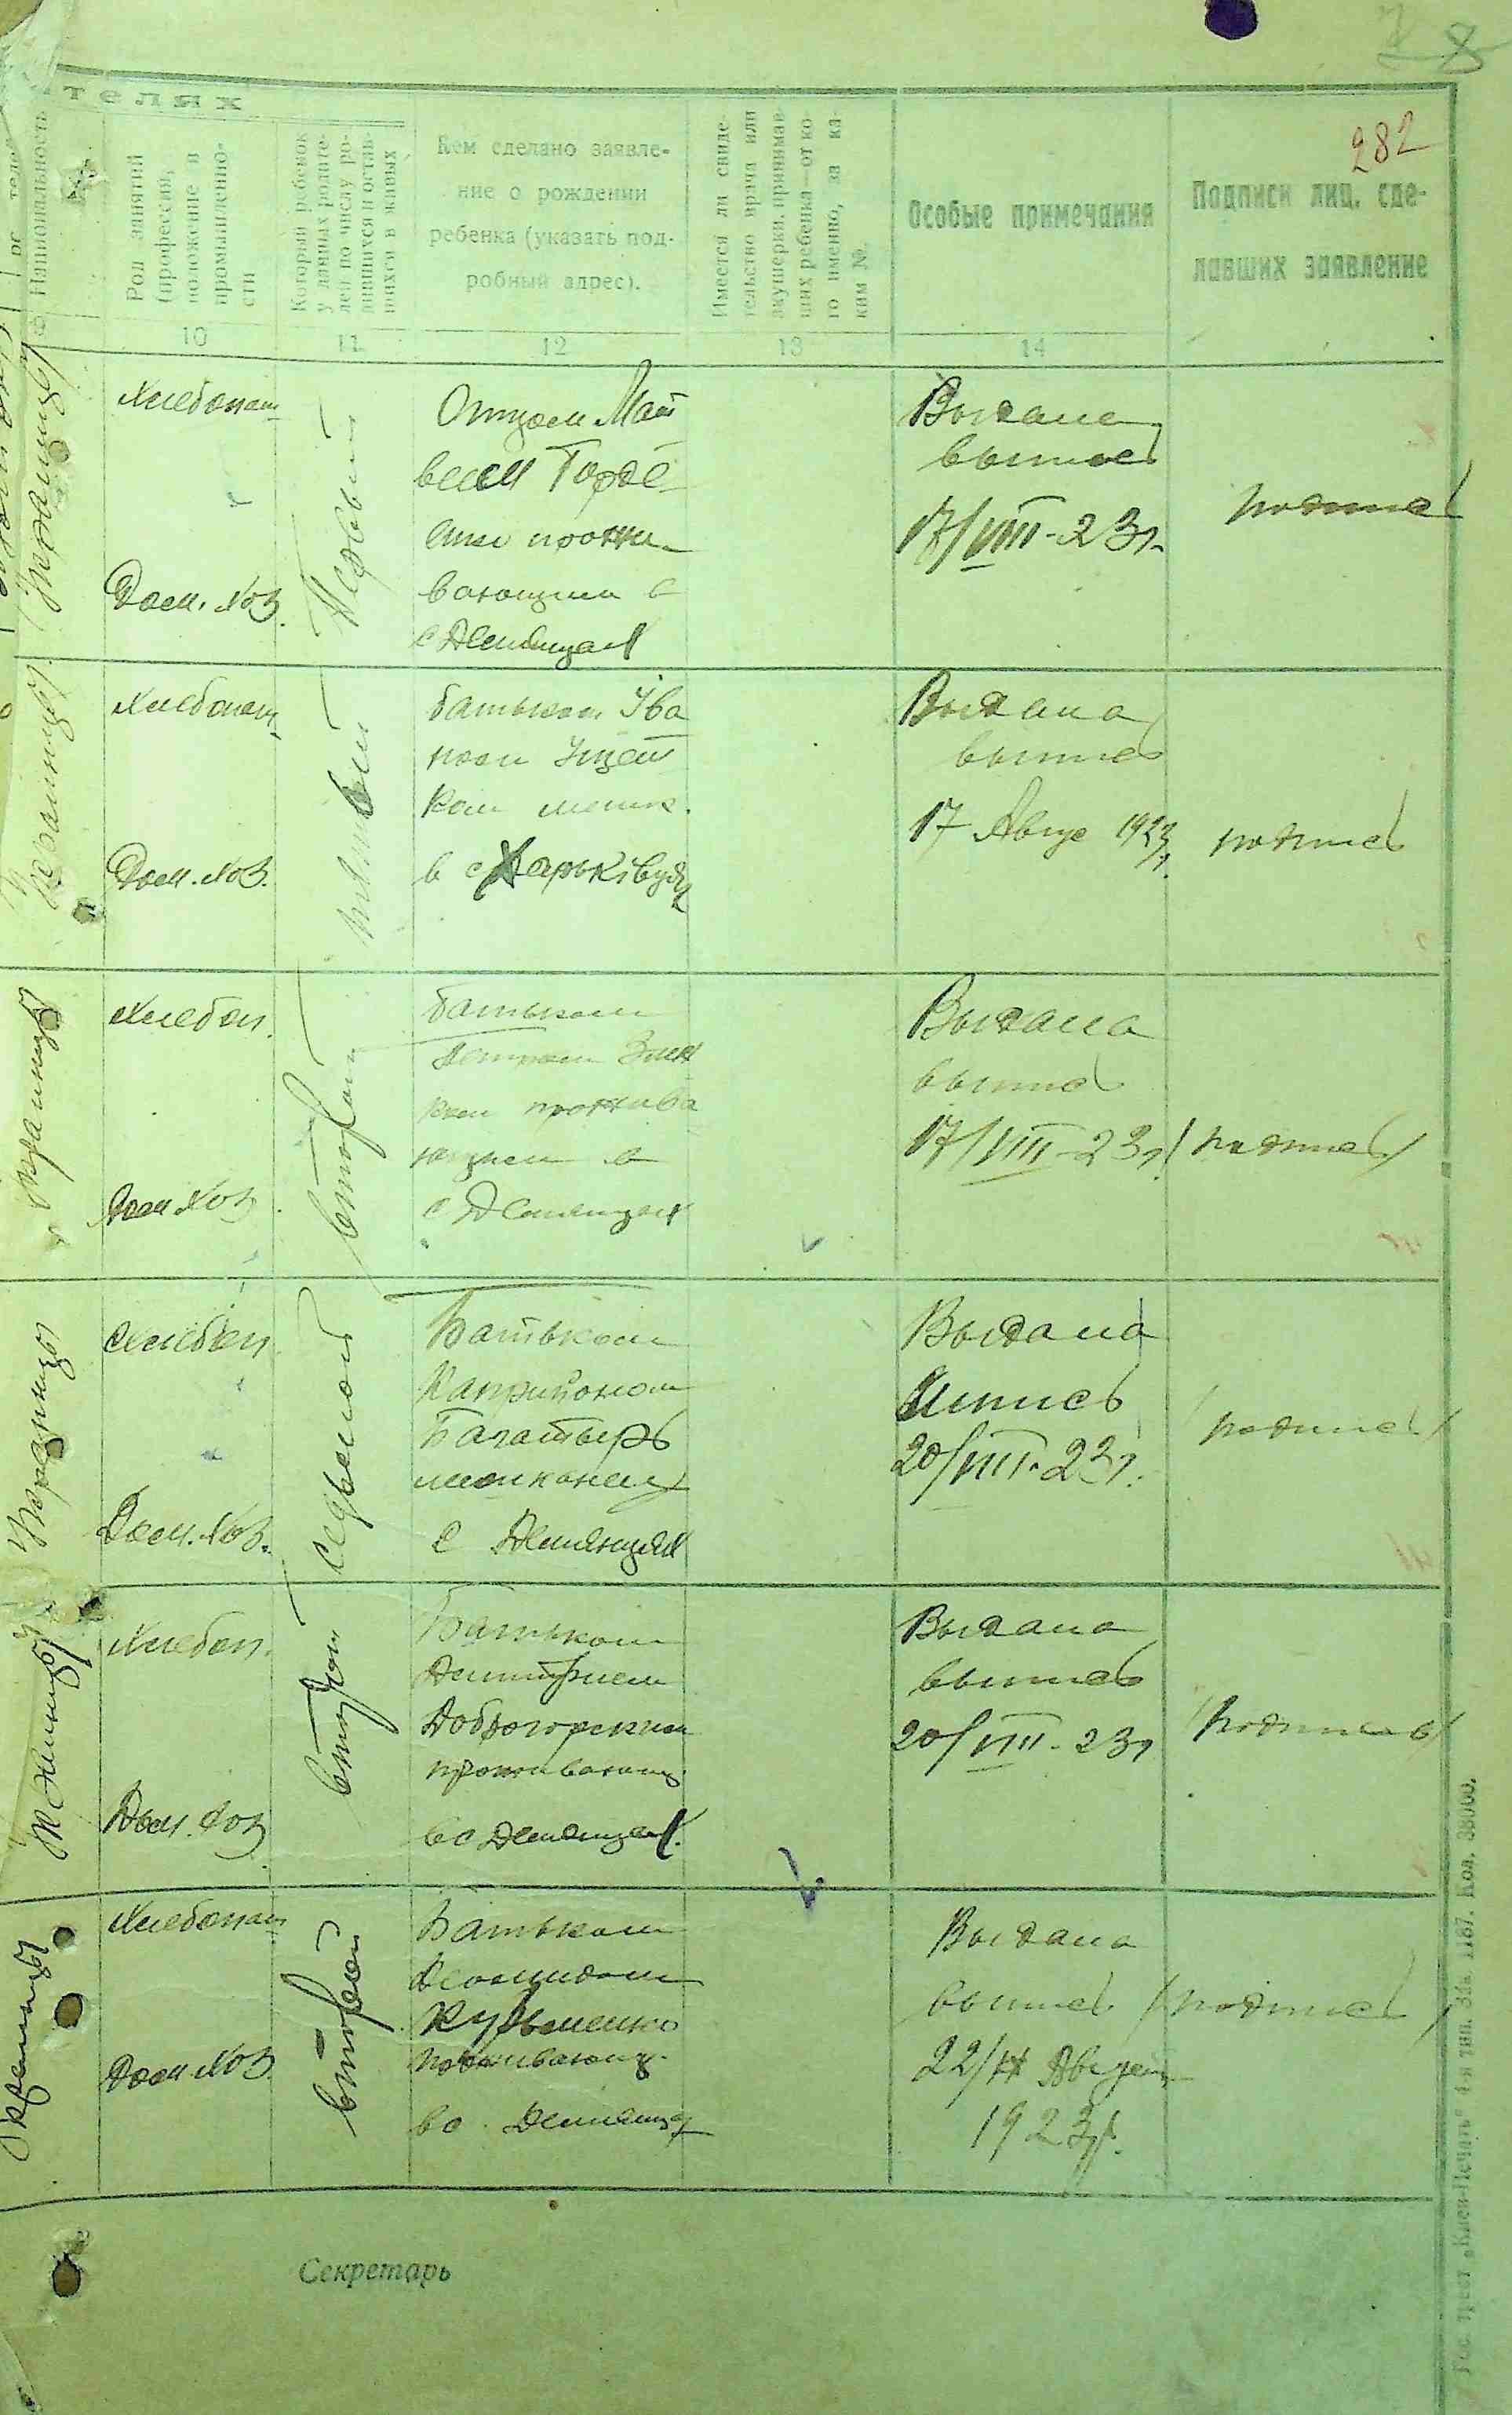 8
282
ителях
Национальность
Род занятий
(профессия,
положение в
промышленно-
сти
Который ребенок
у данных родите-
лей по числу ро-
дившихся и остав-
шихся в живых
Кем сделано заявле-
ние о рождении
ребенка (указать под-
робный адрес).
Имеется ли свиде-
тельство врача или
акушерки, принимав-
ших ребенка—от ко-
го именно, за ка-
ким №.
Особые примечания
Подписи лиц, сде-
лавших заявление
10
11
12
13
14
Хлебопаш
Дом. Хоз.
Первый
Отцом Мат
веем Горде
прожи-
вающим в
с Демянцах
Выдана
выпись
17/VIII-23г.
подпись
Хлебопаш
Дом. Хоз.
батьком Ива
ном
ком
в с
Выдана
выпись
17 Авгус 1923
подпись
Хлебоп.
Дом Хоз
второй
батьком
Петром
ком прожива
ющем в
с Демянцах
Выдана
выпись
17/VIII-23г
подпись
Хлебоп
Дом. Хоз.
седьмой
Батьком
Багатырь
с Демянцах
Выдана
Выпись
20/VIII-23г.
подпись
Хлебоп.
Дом. Хоз
второй
Батьком
Дмитрием
Доброгорским
проживающ.
в с Демянцах.
Выдана
выпись
20/VIII-23г
подпись
Хлебопаш
Дом Хоз
второй
Батьком
Леонидом
Кузьменко
проживающ.
в с. Демянцах
Выдана
выпись
подпись
22/
1923г.
Секретарь
Гос. трест „Киев-Печать“ 4-я тип. Зак. 1187. Кол. 38000.